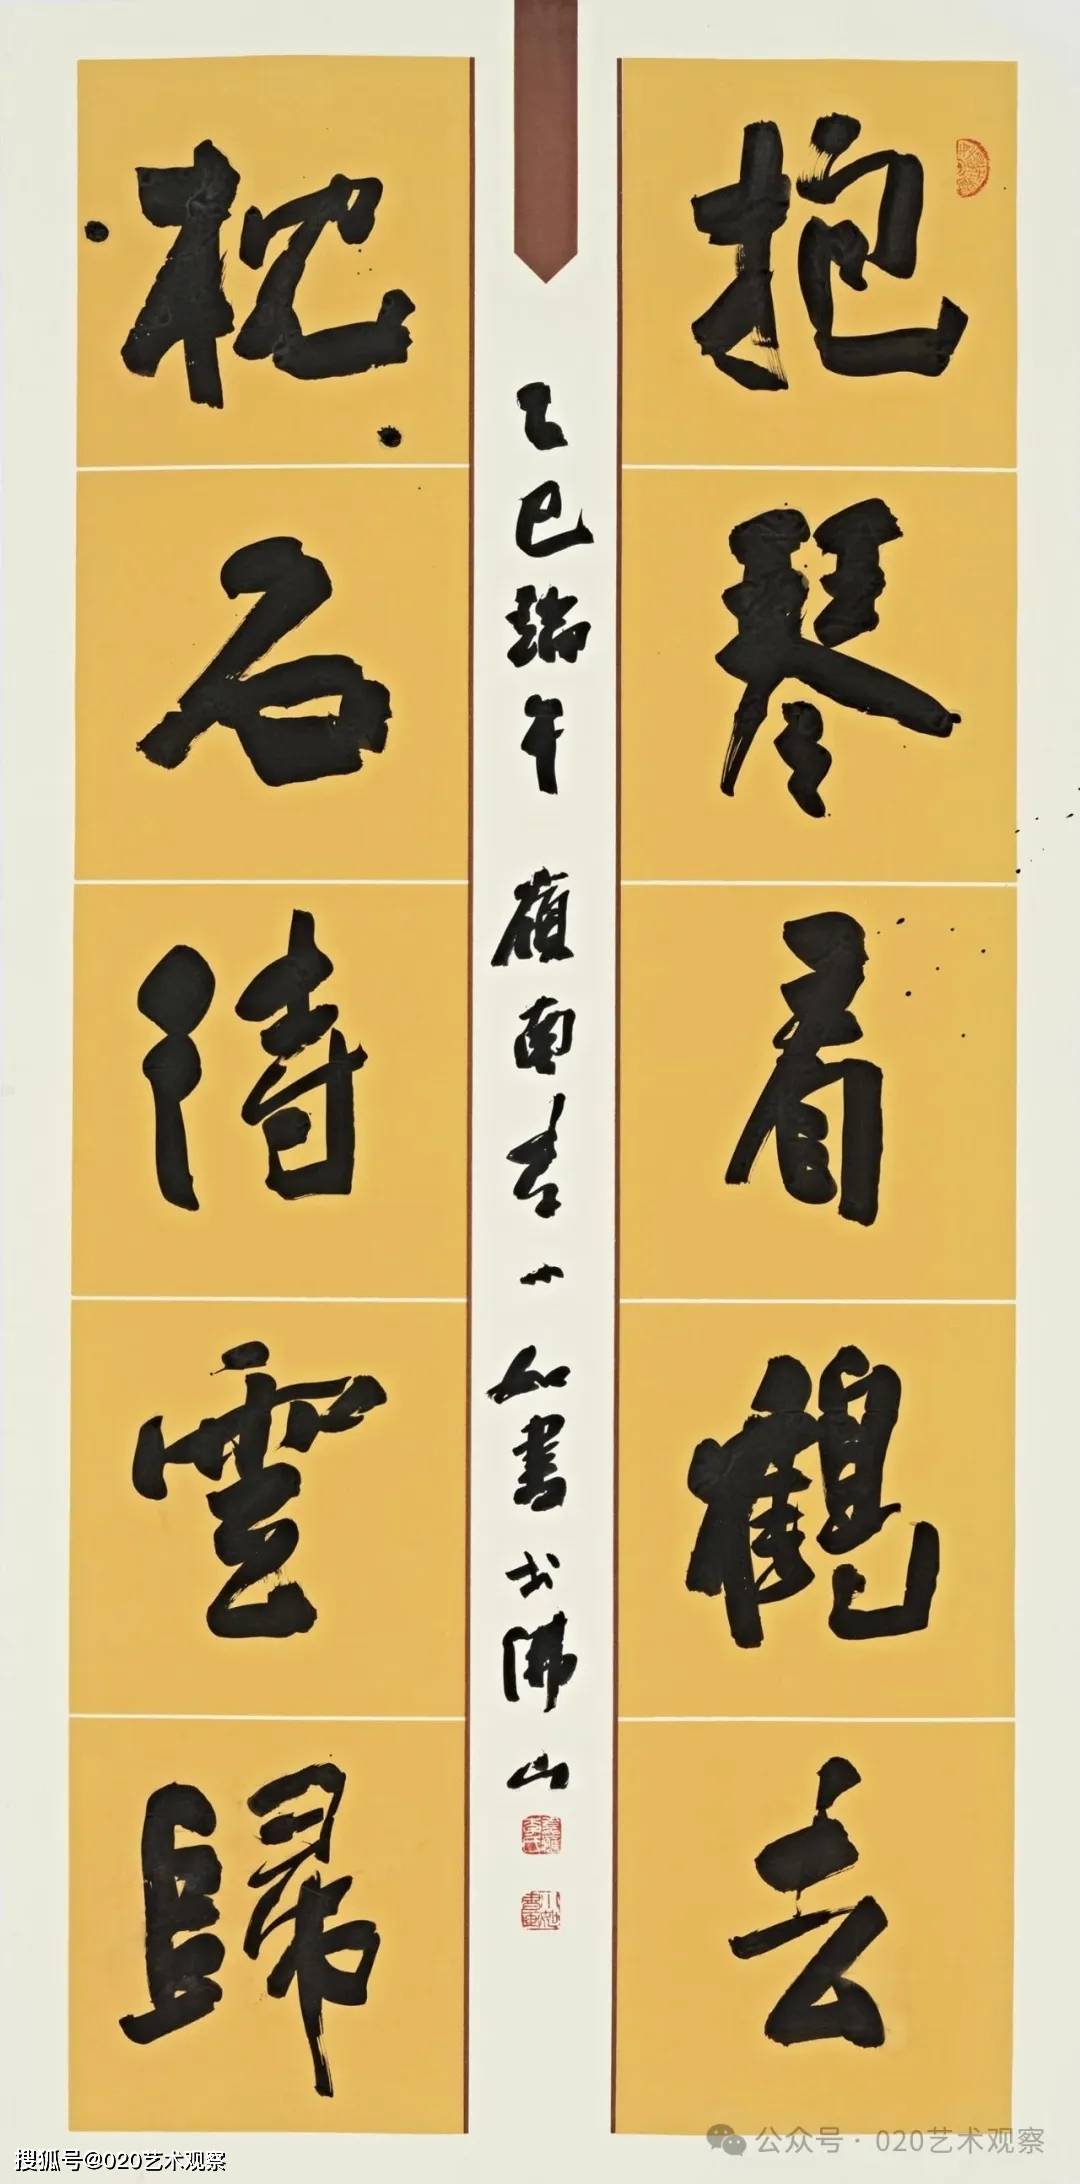 抱琴看鹤去
枕石待雲歸
乙巳端午 嶺南李小如書於佛山
搜狐号@020艺术观察
公众号·020艺术观察